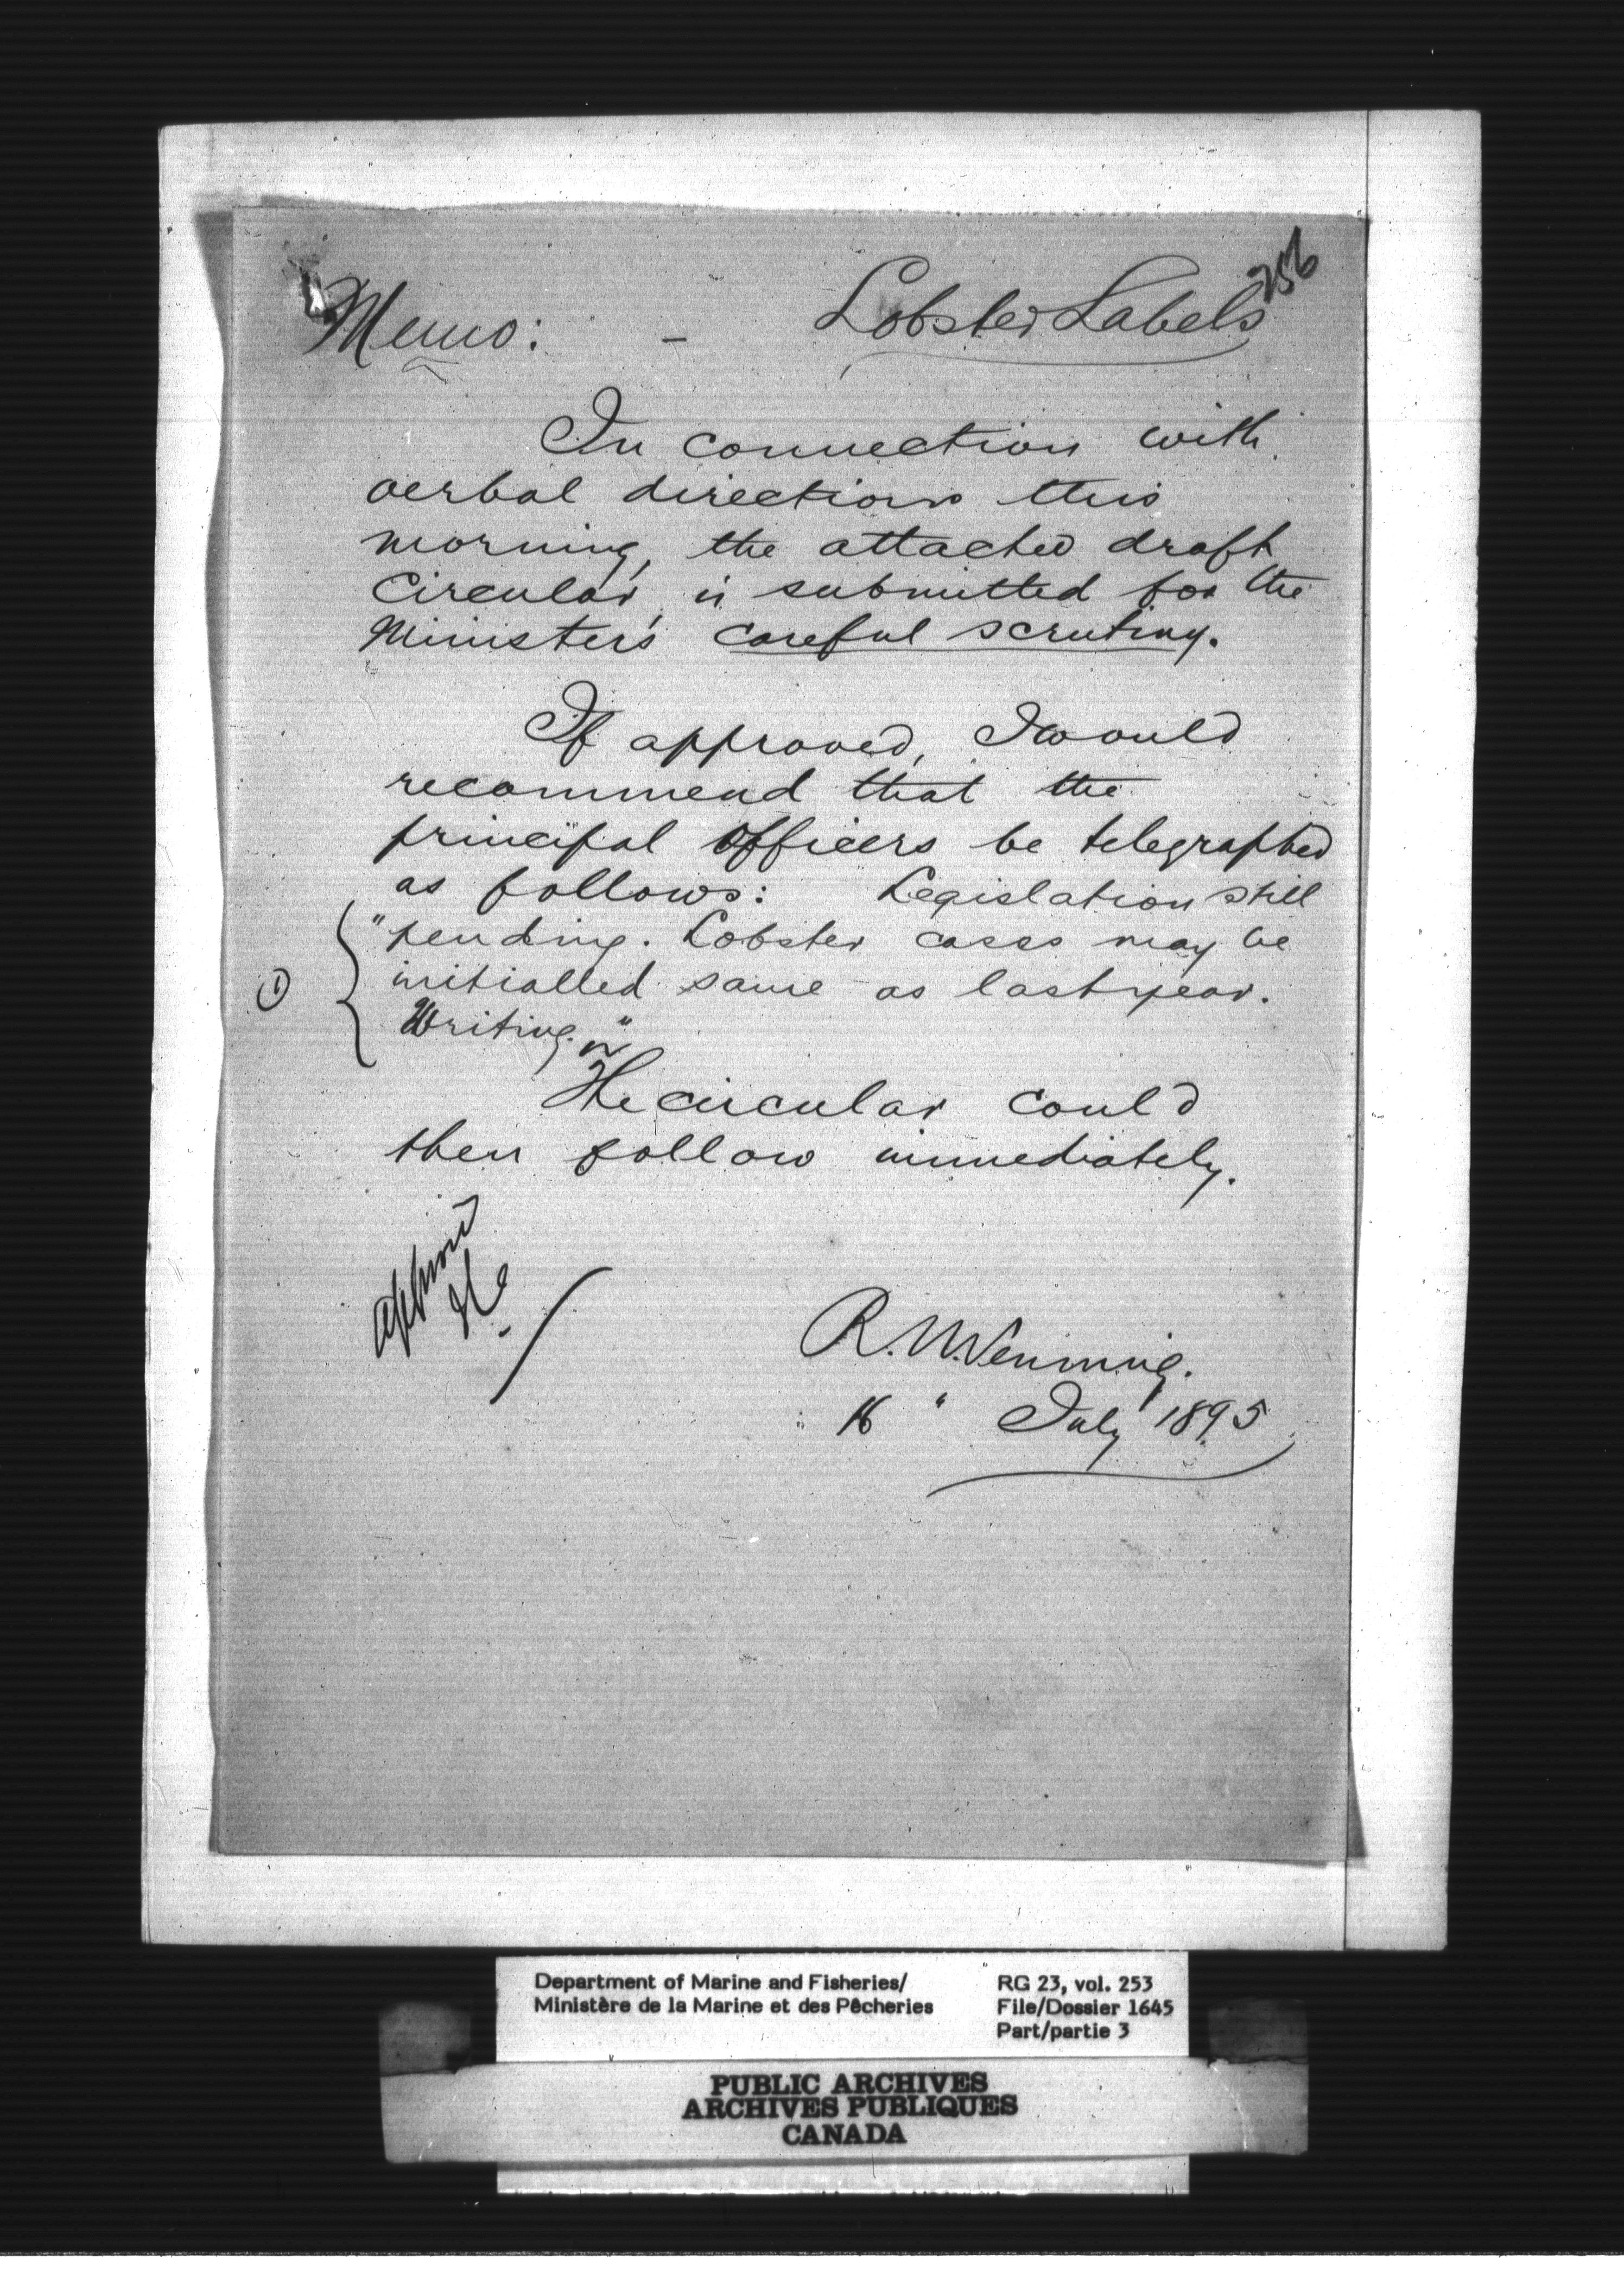 256
Memo: - Lobster Labels
In connection with
verbal directions this
morning, the attached draft
Circular, is submitted for the
Minister's careful scrutiny.
If approved, I would
recommend that the
principal Officers be telegraphed
as follows: Legislation still
"pending. Lobster cases may be
initialled same as last year.
Writing."
The circular could
then follow immediately.
approved
R. N. Venning.
16 " July 1895
Department of Marine and Fisheries/
Ministère de la Marine et des Pêcheries
RG 23, vol. 253
File/Dossier 1645
Part/partie 3
PUBLIC ARCHIVES
ARCHIVES PUBLIQUES
CANADA